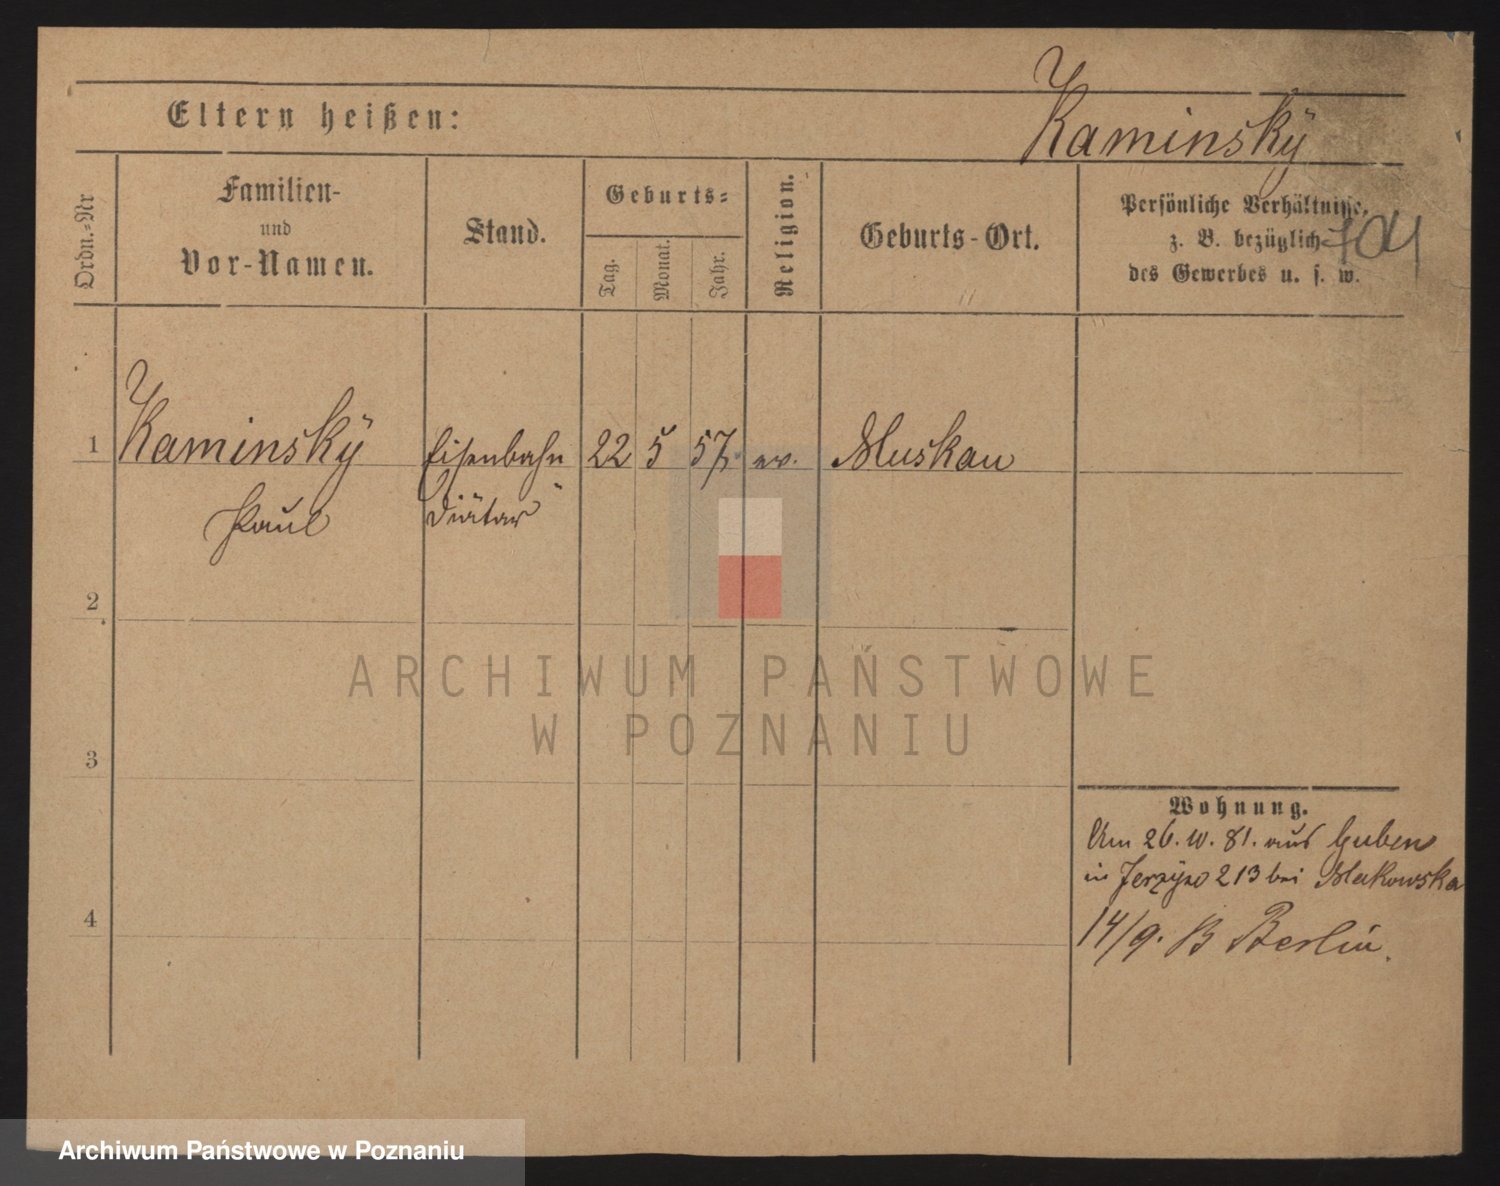 Eltern heißen:
Kaminskÿ
704
Ordn.-Nr
Familien-
und
Vor-Namen.
Stand.
Geburts-
Tag.
Monat.
Jahr.
Religion.
Geburts-Ort.
Persönliche Verhältnisse,
z. B. bezüglich
des Gewerbes u. s. w.
1 Kaminskÿ Eisenbahn 22 5 57 ev. Muskau
Paul Diätar
2
3
4
Wohnung.
Am 26. 10. 81. aus Guben
in Jerzyce 213 bei Makowska
14/9. B Berlin.
ARCHIWUM PAŃSTWOWE
W POZNANIU
Archiwum Państwowe w Poznaniu